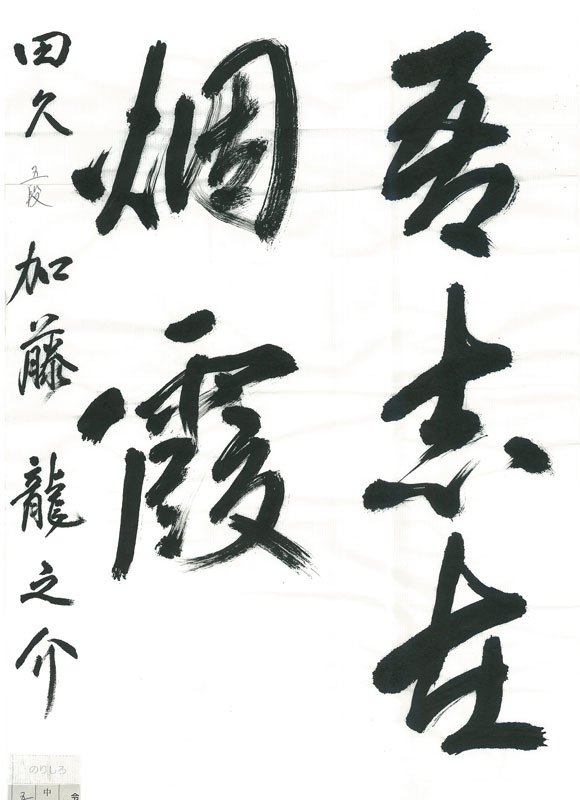 吾志在
烟霞
田久 五段 加藤龍之介
のりしろ
五 中 令